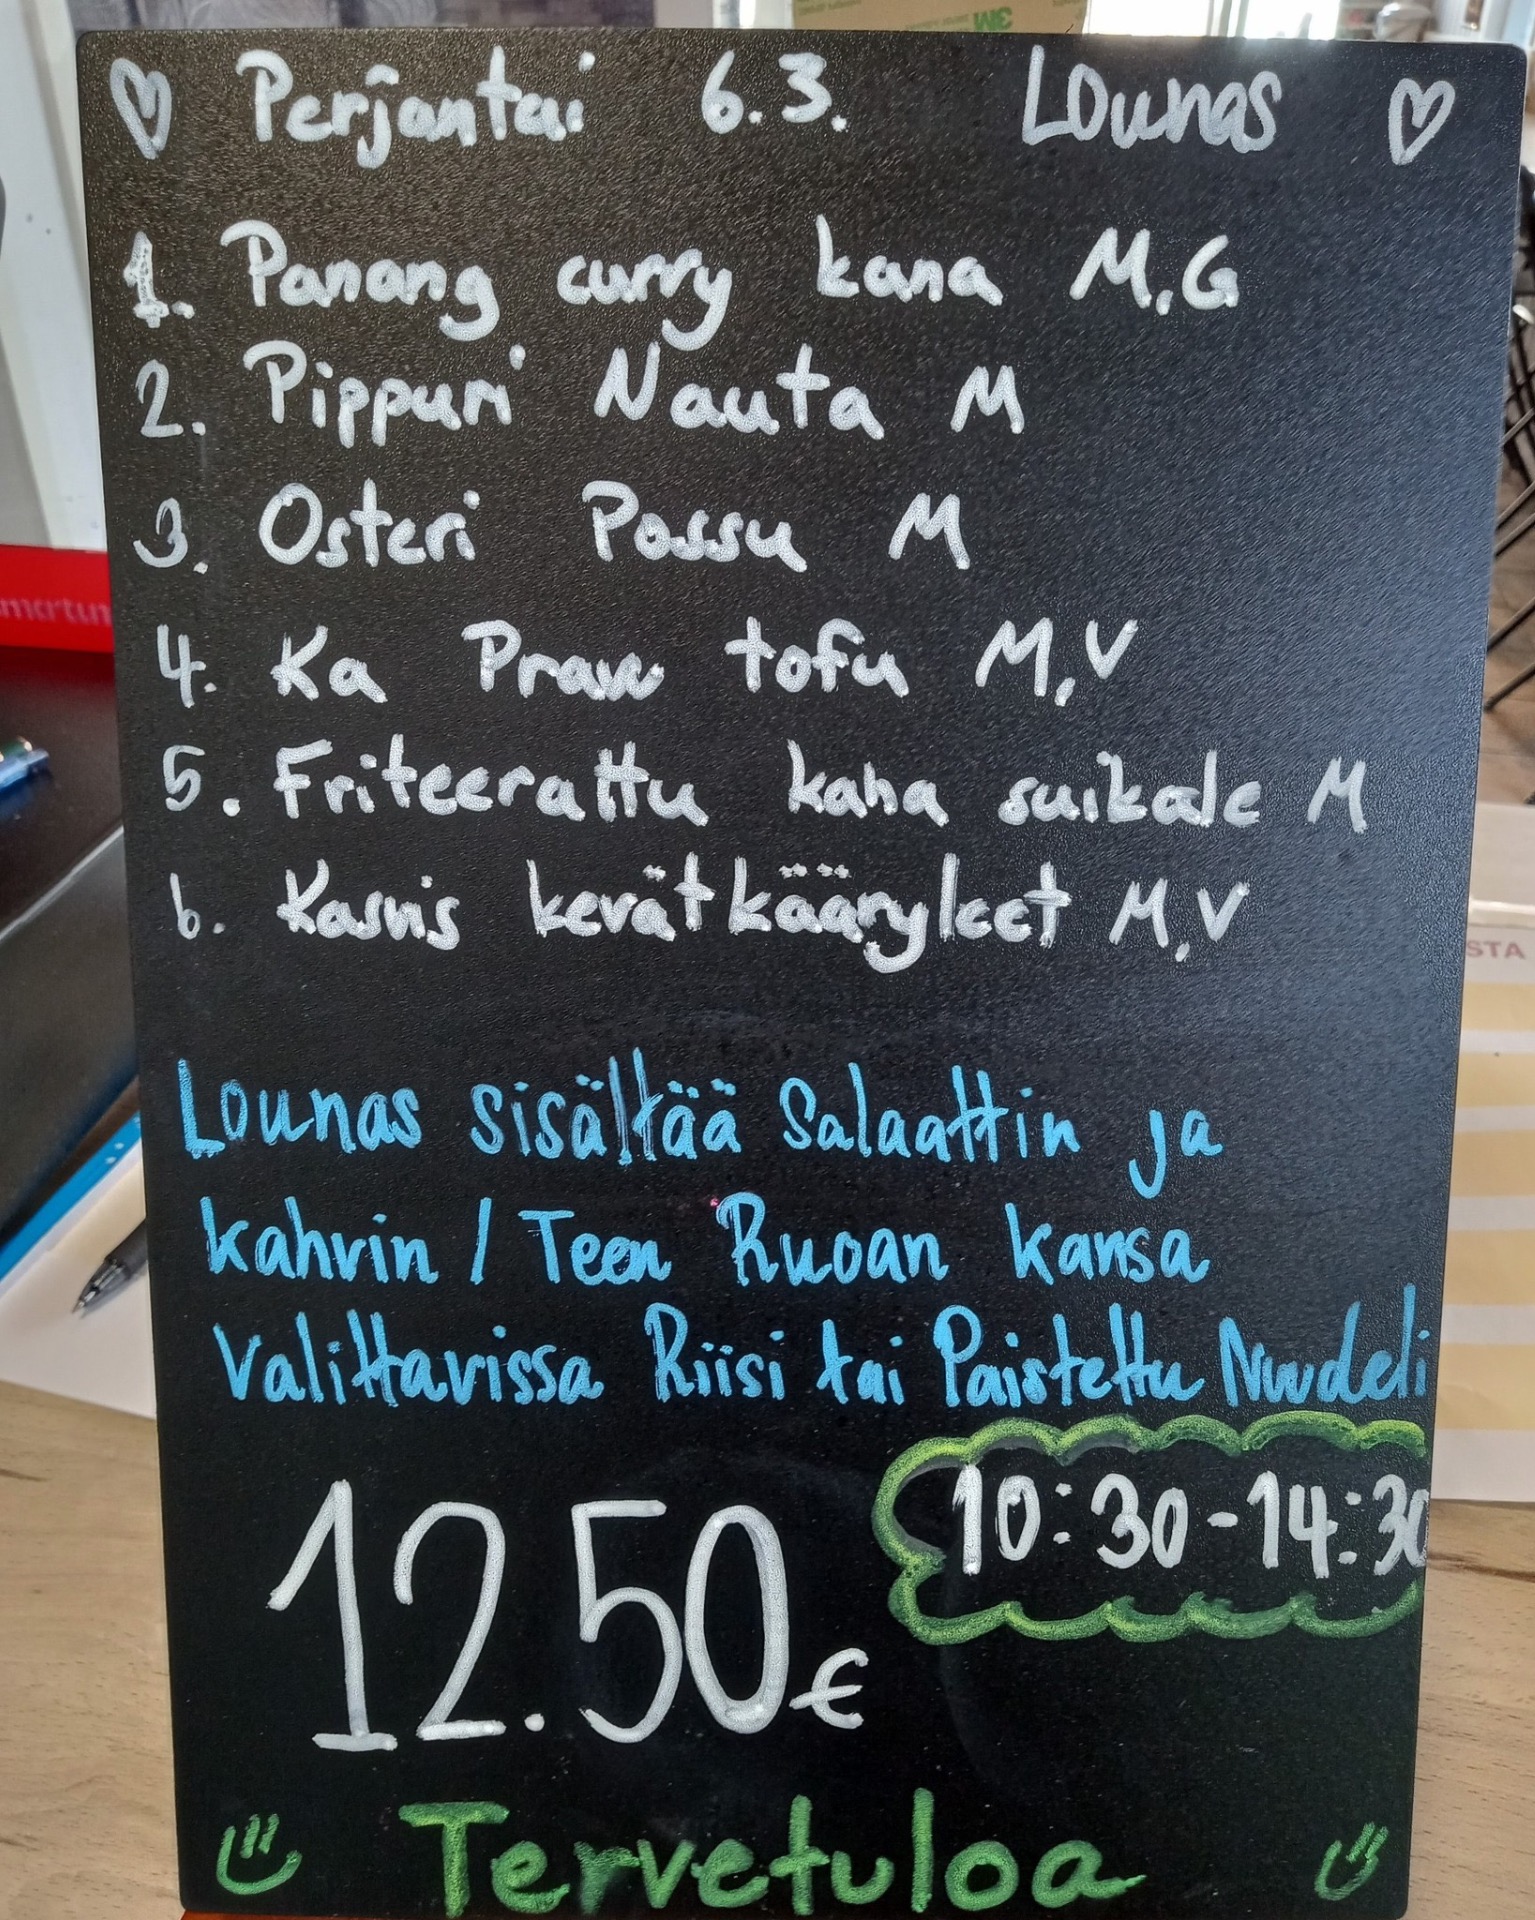 3M
♡ Perjantai 6.3. Lounas ♡
1. Panang curry kana M,G
2. Pippuri Nauta M
3. Osteri Possu M
4. Ka Praw tofu M,V
5. Friteerattu kana suikale M
6. Kasvis kevätkääryleet M,V
Lounas sisältää Salaattin ja
kahvin / Teen Ruoan kansa
valittavissa Riisi tai Paistettu Nuudeli
10:30-14:30
12.50€
Tervetuloa
STA